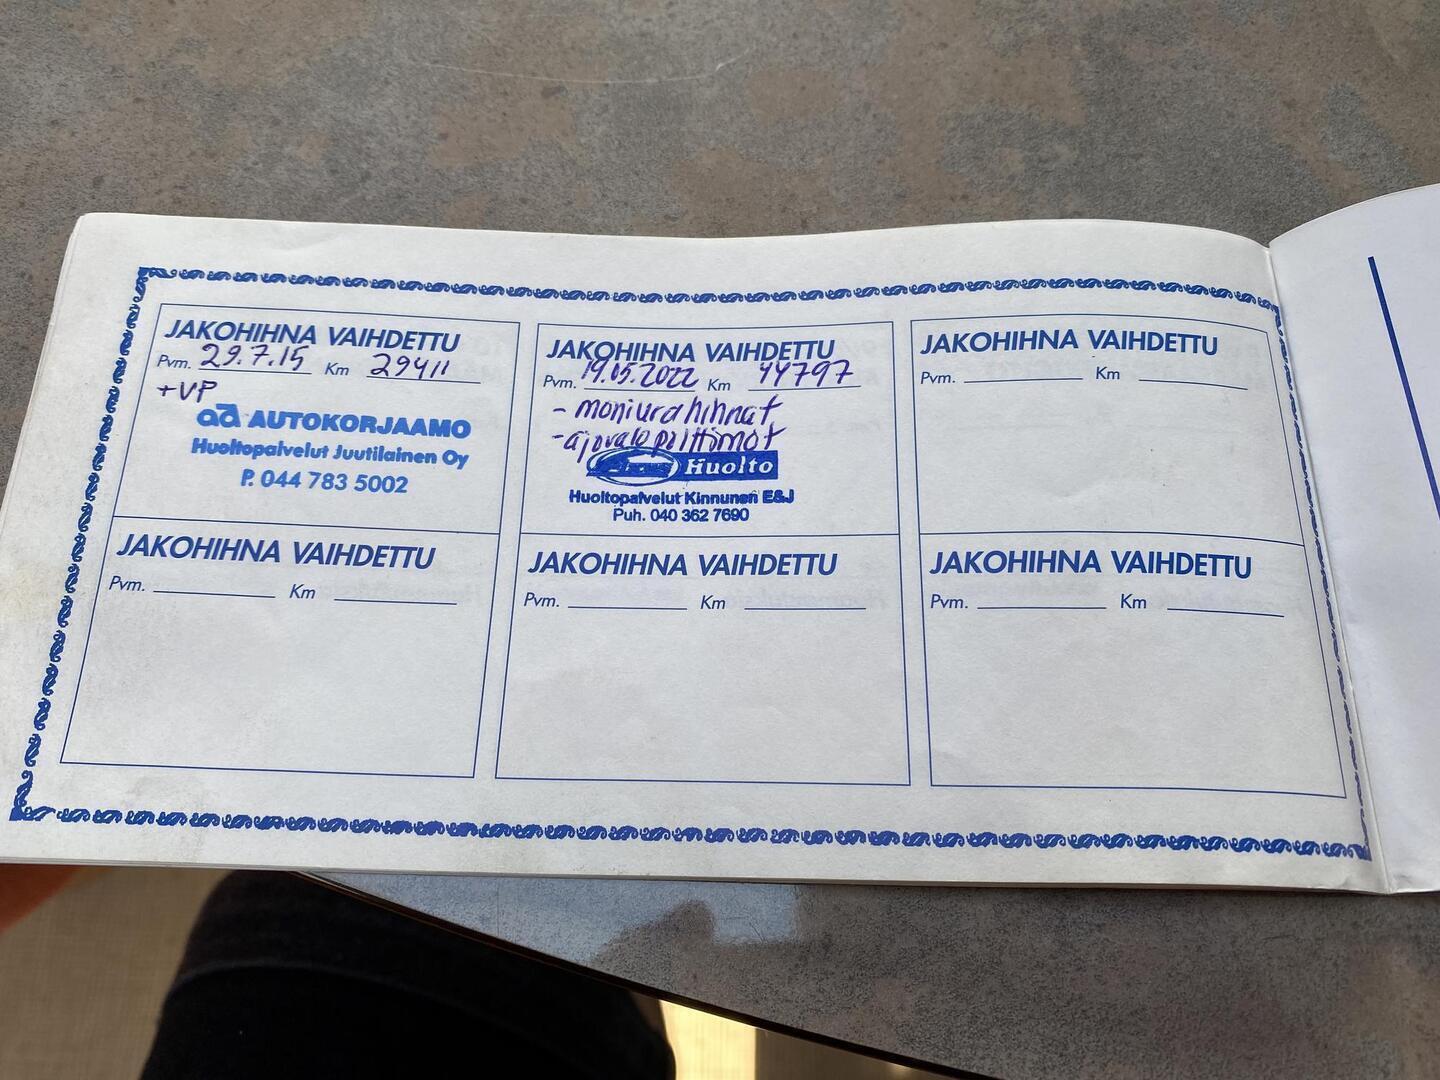 JAKOHIHNA VAIHDETTU
Pvm. 29.7.15 Km 29411
+VP
ad AUTOKORJAAMO
Huoltopalvelut Juutilainen Oy
P. 044 783 5002
JAKOHIHNA VAIHDETTU
Pvm. 19.05.2022 Km 44797
- moniurahihnat
- ajovalopolttimot
Huolto
Huoltopalvelut Kinnunen E&J
Puh. 040 362 7690
JAKOHIHNA VAIHDETTU
Pvm. Km
JAKOHIHNA VAIHDETTU
Pvm. Km
JAKOHIHNA VAIHDETTU
Pvm. Km
JAKOHIHNA VAIHDETTU
Pvm. Km